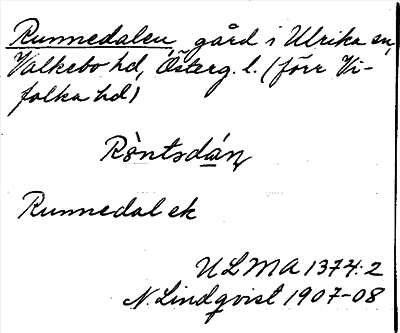 Runnedalen, gård i Ulrika sn,
Valkebo hd, Österg. l. (förr Vi-
folka hd)
Rǒ̀ntsdán
Runnedal ek
ULMA 1374:2
N. Lindqvist 1907-08